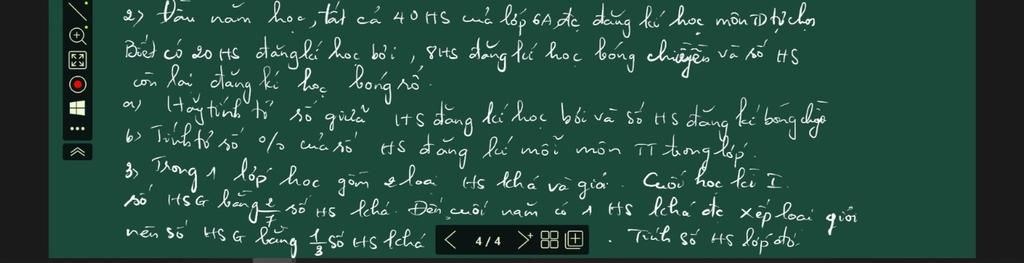 2) Đầu năm học, tất cả 40 HS của lớp 6A đc đăng kí học môn TD tự chọn
Biết có 20 HS đăng kí học bơi, 8 HS đăng kí học bóng chuyền và số HS
còn lại đăng kí học bóng rổ.
a) Hãy tính tỉ số giữa HS đăng kí học bơi và số HS đăng kí bóng chuyền
b) Tính tỉ số % của số HS đăng kí mỗi môn TT trong lớp.
3) Trong 1 lớp học gồm 2 loại HS khá và giỏi. Cuối học kì I.
số HSG bằng 2/7 số HS khá. Đến cuối năm có 1 HS khá đc xếp loại giỏi
nên số HSG bằng 1/3 số HS khá. Tính số HS lớp đó.
4/4